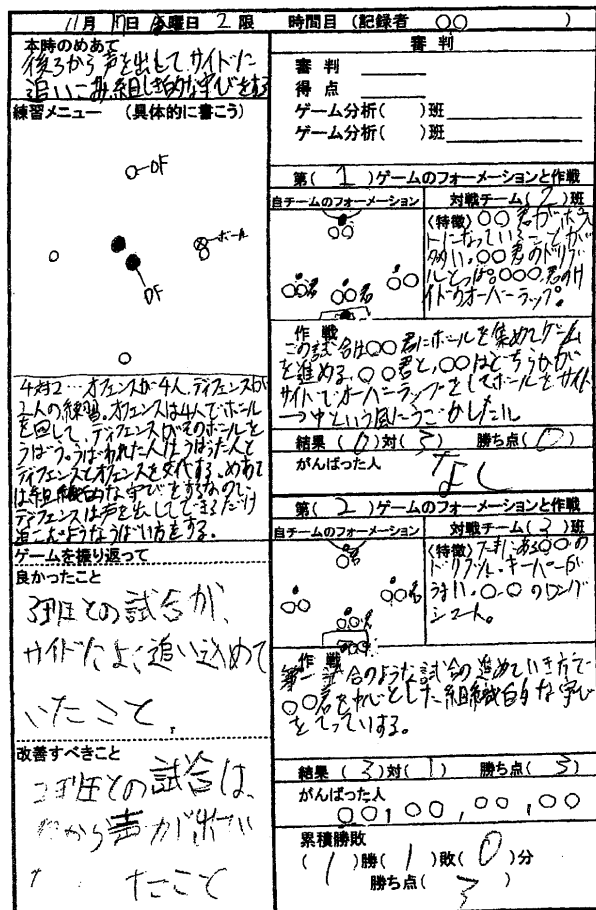 11月17日金曜日2限 時間目(記録者 ○○ )
本時のめあて
後ろから声を出して、サイドに
追いこみ組しき的な守びをする
練習メニュー (具体的に書こう)
DF
ボール
DF
4対2…オフェンスが4人、ディフェンスが
2人の練習。オフェンスは4人でボール
を回して、ディフェンスがそのボールを
うばう。うばわれた人はうばった人と
ディフェンスとオフェンスを交代する。めあて
は組織的な守びをするなので、
ディフェンスは声を出してできるだけ
追いこむようなうばい方をする。
ゲームを振り返って
良かったこと
3班との試合が、
サイドによく追い込めて
いたこと。
改善すべきこと
2班との試合は、
から声が出てい
たこと
審判
審判
得点
ゲーム分析( )班
ゲーム分析( )班
第( 1 )ゲームのフォーメーションと作戦
自チームのフォーメーション 対戦チーム( 2 )班
○○
○○君 ○○君 ○○
〈特徴〉○○君がポス
トになっていることが
多い。○○君のドリブ
ルとっぱ。○○○君のサ
イドのオーバーラップ。
作戦
この試合は○○君にボールを集めてゲーム
を進める。○○君と、○○はどちらかが
サイドでオーバーラップをしてボールをサイド
→中という風にうごかしたい。
結果( 0 )対( 3 ) 勝ち点( 0 )
がんばった人
なし
第( 2 )ゲームのフォーメーションと作戦
自チームのフォーメーション 対戦チーム( 3 )班
○○君
○○ ○○君
○○
〈特徴〉たまにある○○の
ドリブル・キーパーが
うまい。○○のロング
シュート。
作戦
第一試合のような試合の進めていき方で
○○君を中心とした組織的な守び
をてっていする。
結果( 3 )対( 1 ) 勝ち点( 3 )
がんばった人
○○,○○,○○,○○
累積勝敗
( 1 )勝( 1 )敗( 0 )分
勝ち点( 3 )